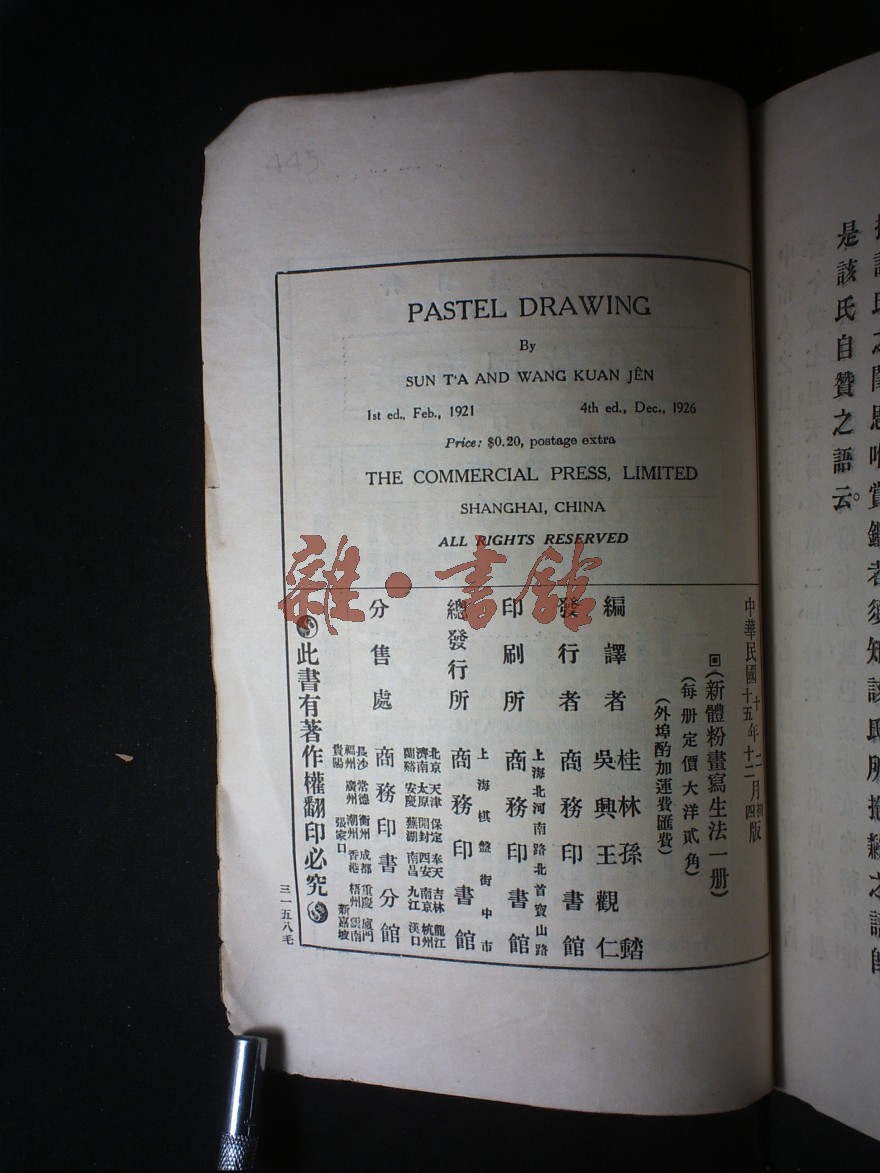 445
PASTEL DRAWING
By
SUN T'A AND WANG KUAN JÊN
1st ed., Feb., 1921 4th ed., Dec., 1926
Price: $0.20, postage extra
THE COMMERCIAL PRESS, LIMITED
SHANGHAI, CHINA
ALL RIGHTS RESERVED
雜·書館
中華民國
十年二月初版
十五年十二月四版
回(新體粉畫寫生法一册)
(每册定價大洋貳角)
(外埠酌加運費匯費)
編譯者 桂林孫䠜
吳興王觀仁
發行者 商務印書館
印刷所 上海北河南路北首寶山路
商務印書館
總發行所 上海棋盤街中市
商務印書館
分售處
北京 天津 保定 奉天 吉林 龍江
濟南 太原 開封 西安 南京 杭州
蘭谿 安慶 蕪湖 南昌 九江 漢口
商務印書分館
長沙 常德 衡州 成都 重慶 廈門
福州 廣州 潮州 香港 梧州 雲南
貴陽 張家口 新嘉坡
此書有著作權翻印必究
三一五八毛
是該氏自贊之語云。